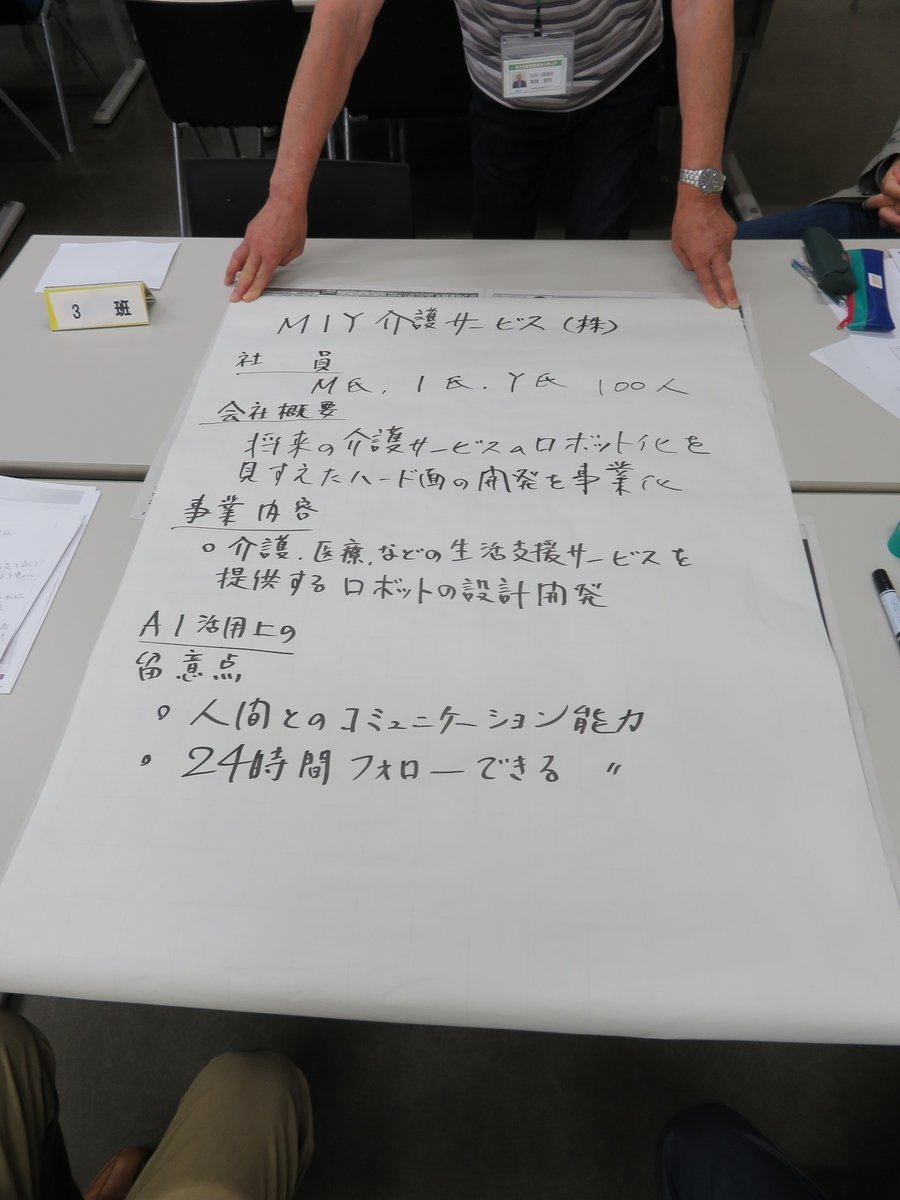 3 班
MIY介護サービス(株)
社 員
M氏, I氏, Y氏 100人
会社概要
将来の介護サービスのロボット化を
見すえたハード面の開発を事業化
事業内容
○ 介護,医療,などの生活支援サービスを
提供するロボットの設計開発
AI活用上の
留意点
○ 人間とのコミュニケーション能力
○ 24時間フォローできる 〃